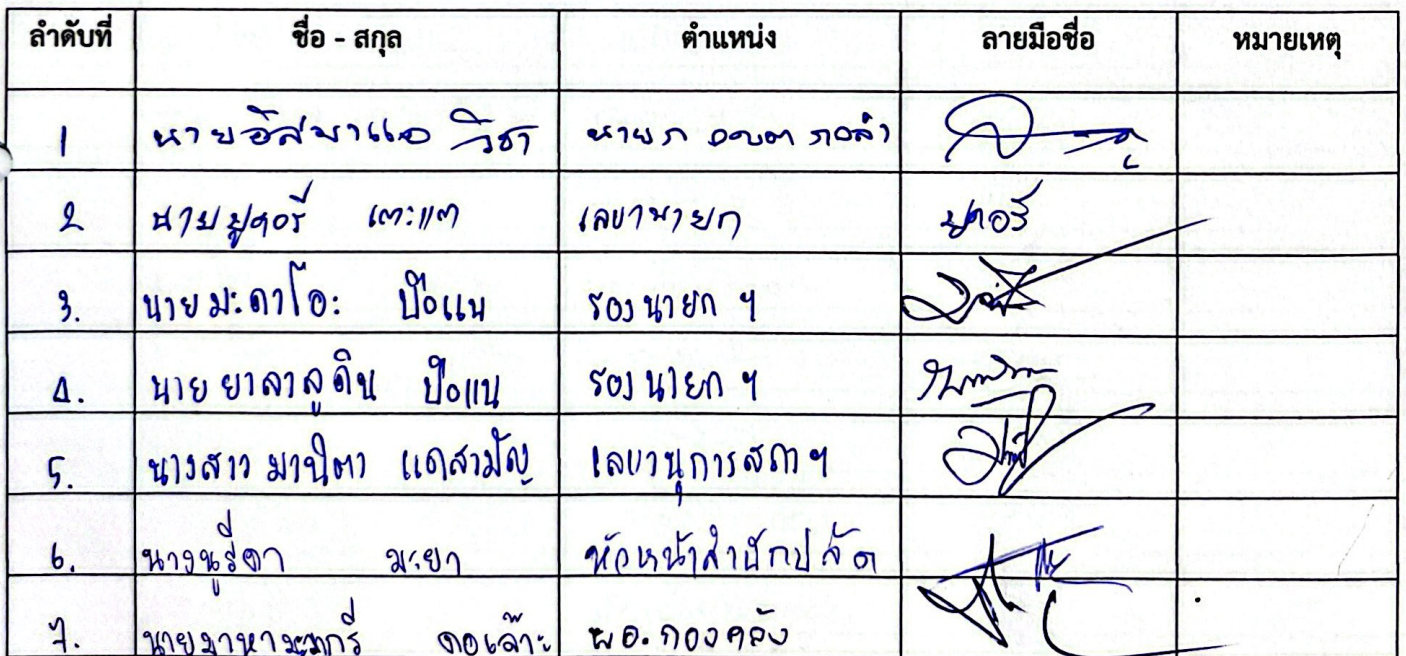 ลำดับที่ ชื่อ - สกุล ตำแหน่ง ลายมือชื่อ หมายเหตุ
1 นายอิสมาแอ วิชา นายก อบต กอลำ
2 นายยูคอรี เตะแต เลขานายก ยูคอรี
3. นายมะดาโอะ ป้อแน รองนายก ฯ
4. นาย ยาลาลูดิน ป้อแน รองนายก ฯ
5. นางสาว มานิตา แดสามัญ เลขานุการสภา ฯ
6. นางนูรีดา มะยา หัวหน้าสำนักปลัด
7. ผอ. กองคลัง